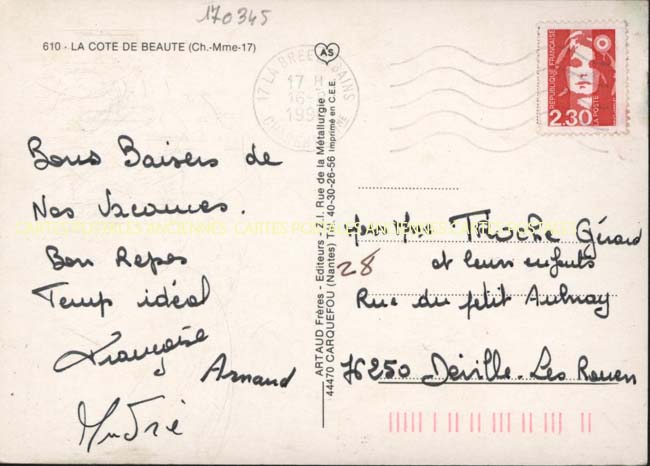 170345
610 - LA COTE DE BEAUTE (Ch.-Mme-17)
AS
17 LA BREE BAINS
17 H
16
199
REPUBLIQUE FRANÇAISE
LA POSTE
2,30
Bons Baisers de
Nos Vacances.
Bon Repos
Temp idéal
Françoise
Arnaud
André
ARTAUD Frères - Editeurs - Z.I. Rue de la Métallurgie
44470 CARQUEFOU (Nantes) Tél. 40-30-26-56 Imprimé en C.E.E.
28
Gérard
et leurs enfants
Rue du petit Aulnay
76250 Déville-Les Rouen
CARTES POSTALES ANCIENNES CARTES POSTALES ANCIENNES CARTES POSTALES